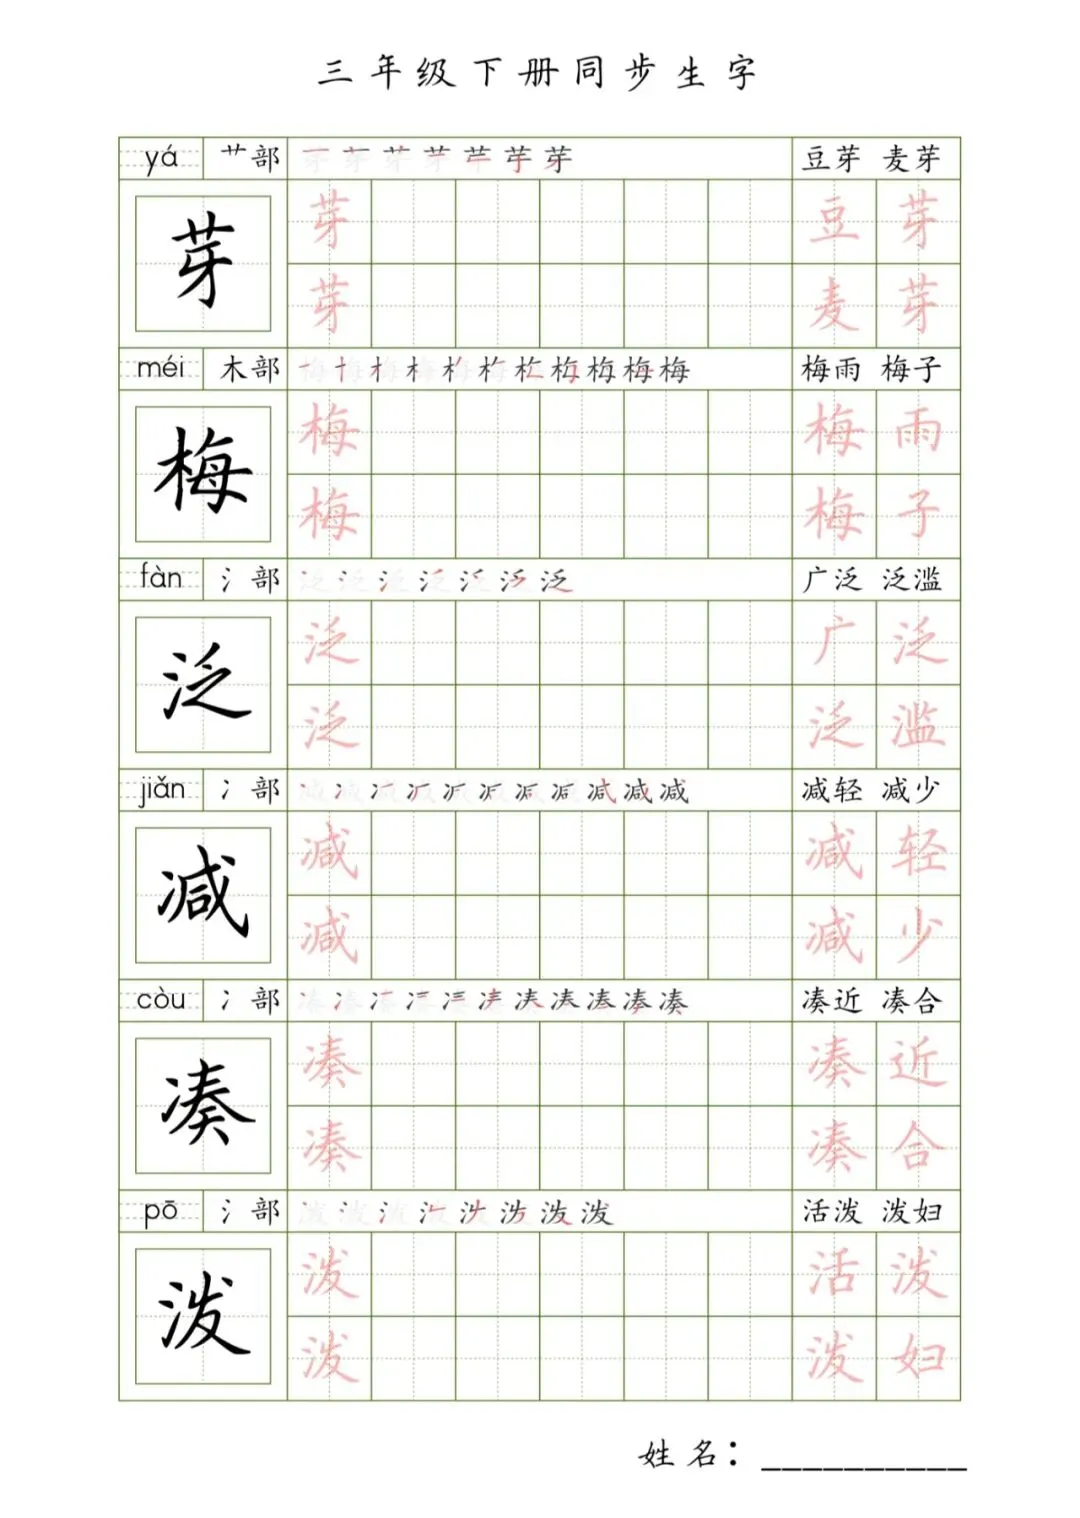 三年级下册同步生字
yá 艹部 豆芽 麦芽
芽 芽 豆芽
芽 麦芽
méi 木部 梅雨 梅子
梅 梅 梅雨
梅 梅子
fàn 氵部 广泛 泛滥
泛 泛 广泛
泛 泛滥
jiǎn 冫部 减轻 减少
减 减 减轻
减 减少
còu 冫部 凑近 凑合
凑 凑 凑近
凑 凑合
pō 氵部 活泼 泼妇
泼 泼 活泼
泼 泼妇
姓名：__________